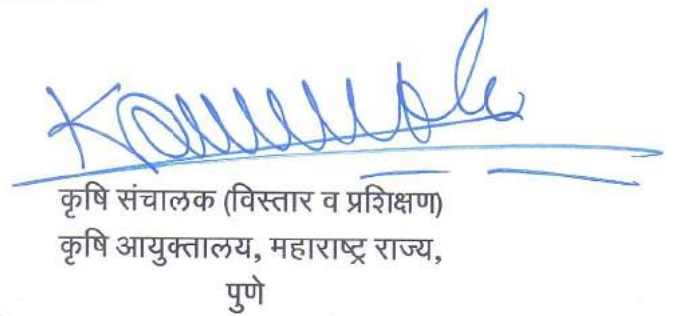 कृषि संचालक (विस्तार व प्रशिक्षण)
कृषि आयुक्तालय, महाराष्ट्र राज्य,
पुणे